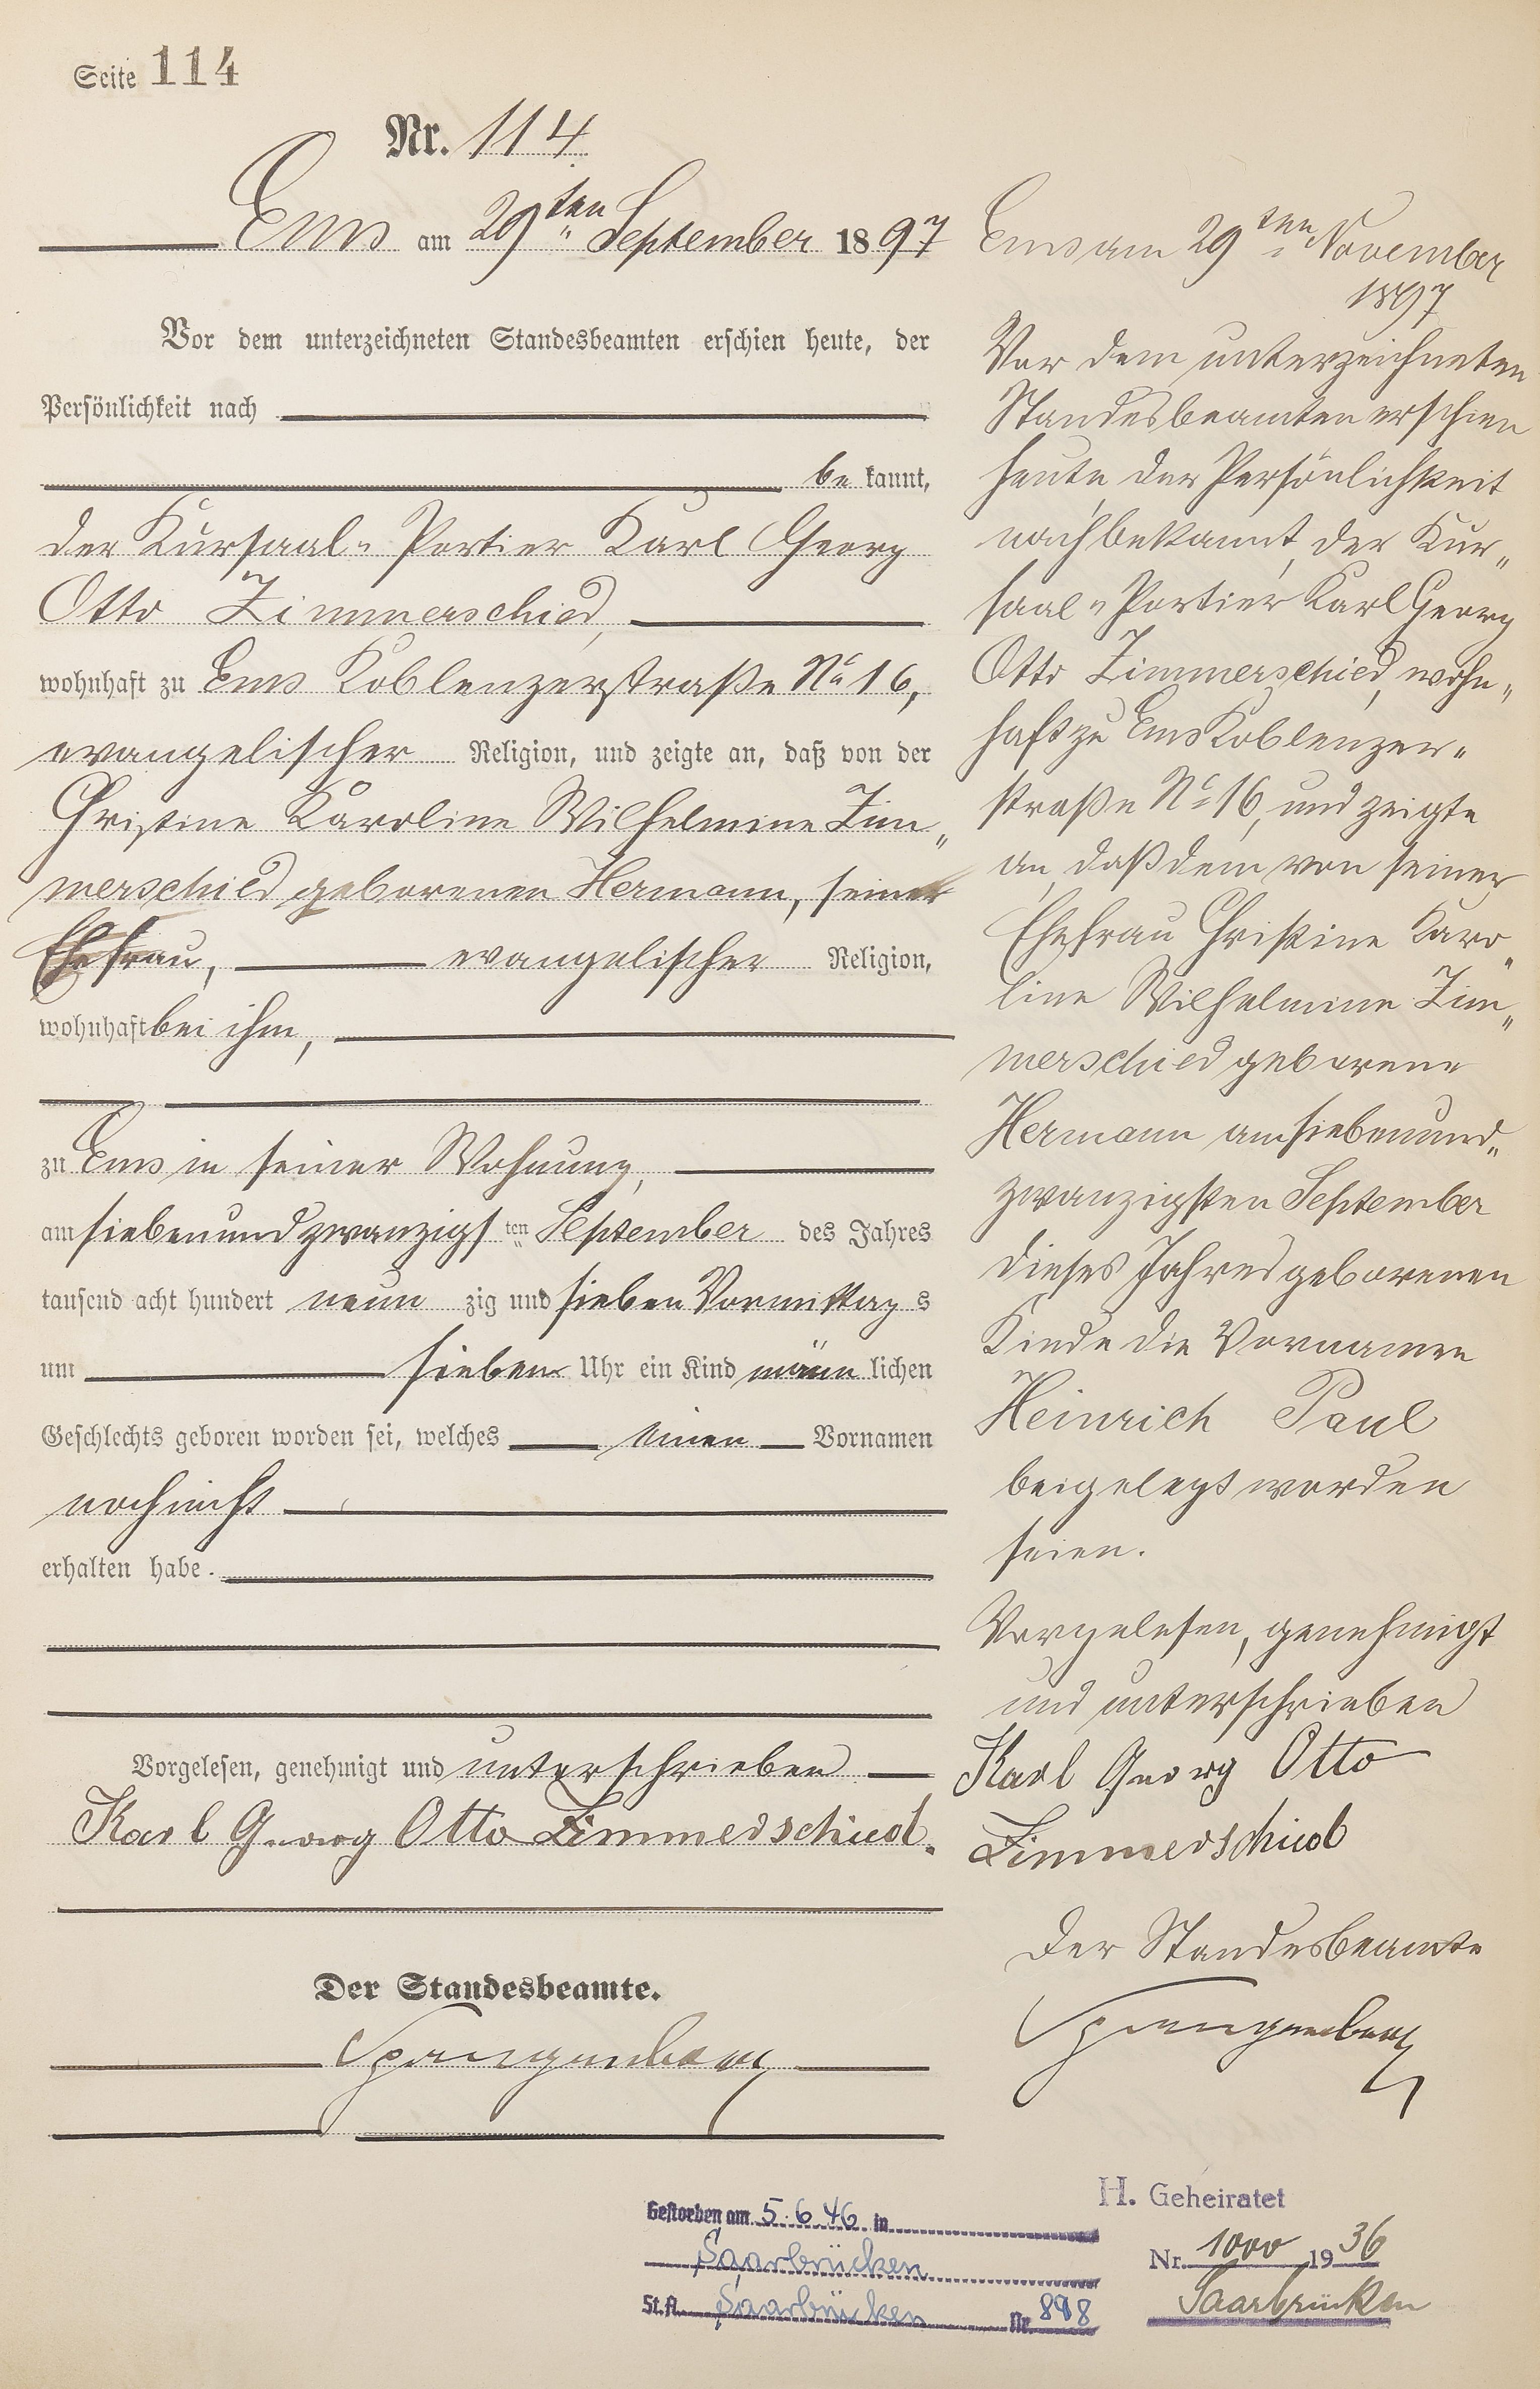 Seite 114
Nr. 114
Ems am 29ten September 1897
Vor dem unterzeichneten Standesbeamten erschien heute, der
Persönlichkeit nach
be kannt,
der Kursaal-Portier Karl Georg
Otto Zimmerschied,
wohnhaft zu Ems Koblenzerstraße No 16,
evangelischer Religion, und zeigte an, daß von der
Christine Karoline Wilhelmine Zim„
merschied geborenen Hermann, seiner
Ehefrau, evangelischer Religion,
wohnhaft bei ihm,
zu Ems in seiner Wohnung,
am siebenundzwanzigsten September des Jahres
tausend acht hundert neun zig und sieben Vormittag s
um sieben Uhr ein Kind männ lichen
Geschlechts geboren worden sei, welches einen Vornamen
noch nicht
erhalten habe.
Vorgelesen, genehmigt und unterschrieben
Karl Georg Otto Zimmerschied.
Der Standesbeamte.
Spangenberg
Ems am 29ten November
1897
Vor dem unterzeichneten
Standesbeamten erschien
heute, der Persönlichkeit
nach bekannt, der Kur„
saal-Portier Karl Georg
Otto Zimmerschied, wohn„
haft zu Ems Koblenzer„
straße No 16, und zeigte
an, daß dem von seiner
Ehefrau Christine Karo„
line Wilhelmine Zim„
merschied geborene
Hermann am siebenund„
zwanzigsten September
dieses Jahres geborenen
Kinde die Vornamen
Heinrich Paul
beigelegt worden
seien.
Vorgelesen, genehmigt
und unterschrieben
Karl Georg Otto
Zimmerschied
Der Standesbeamte
Spangenberg
Gestorben am 5.6.46 in
Saarbrücken
St.A. Saarbrücken Nr. 898
H. Geheiratet
Nr. 1000 1936
Saarbrücken